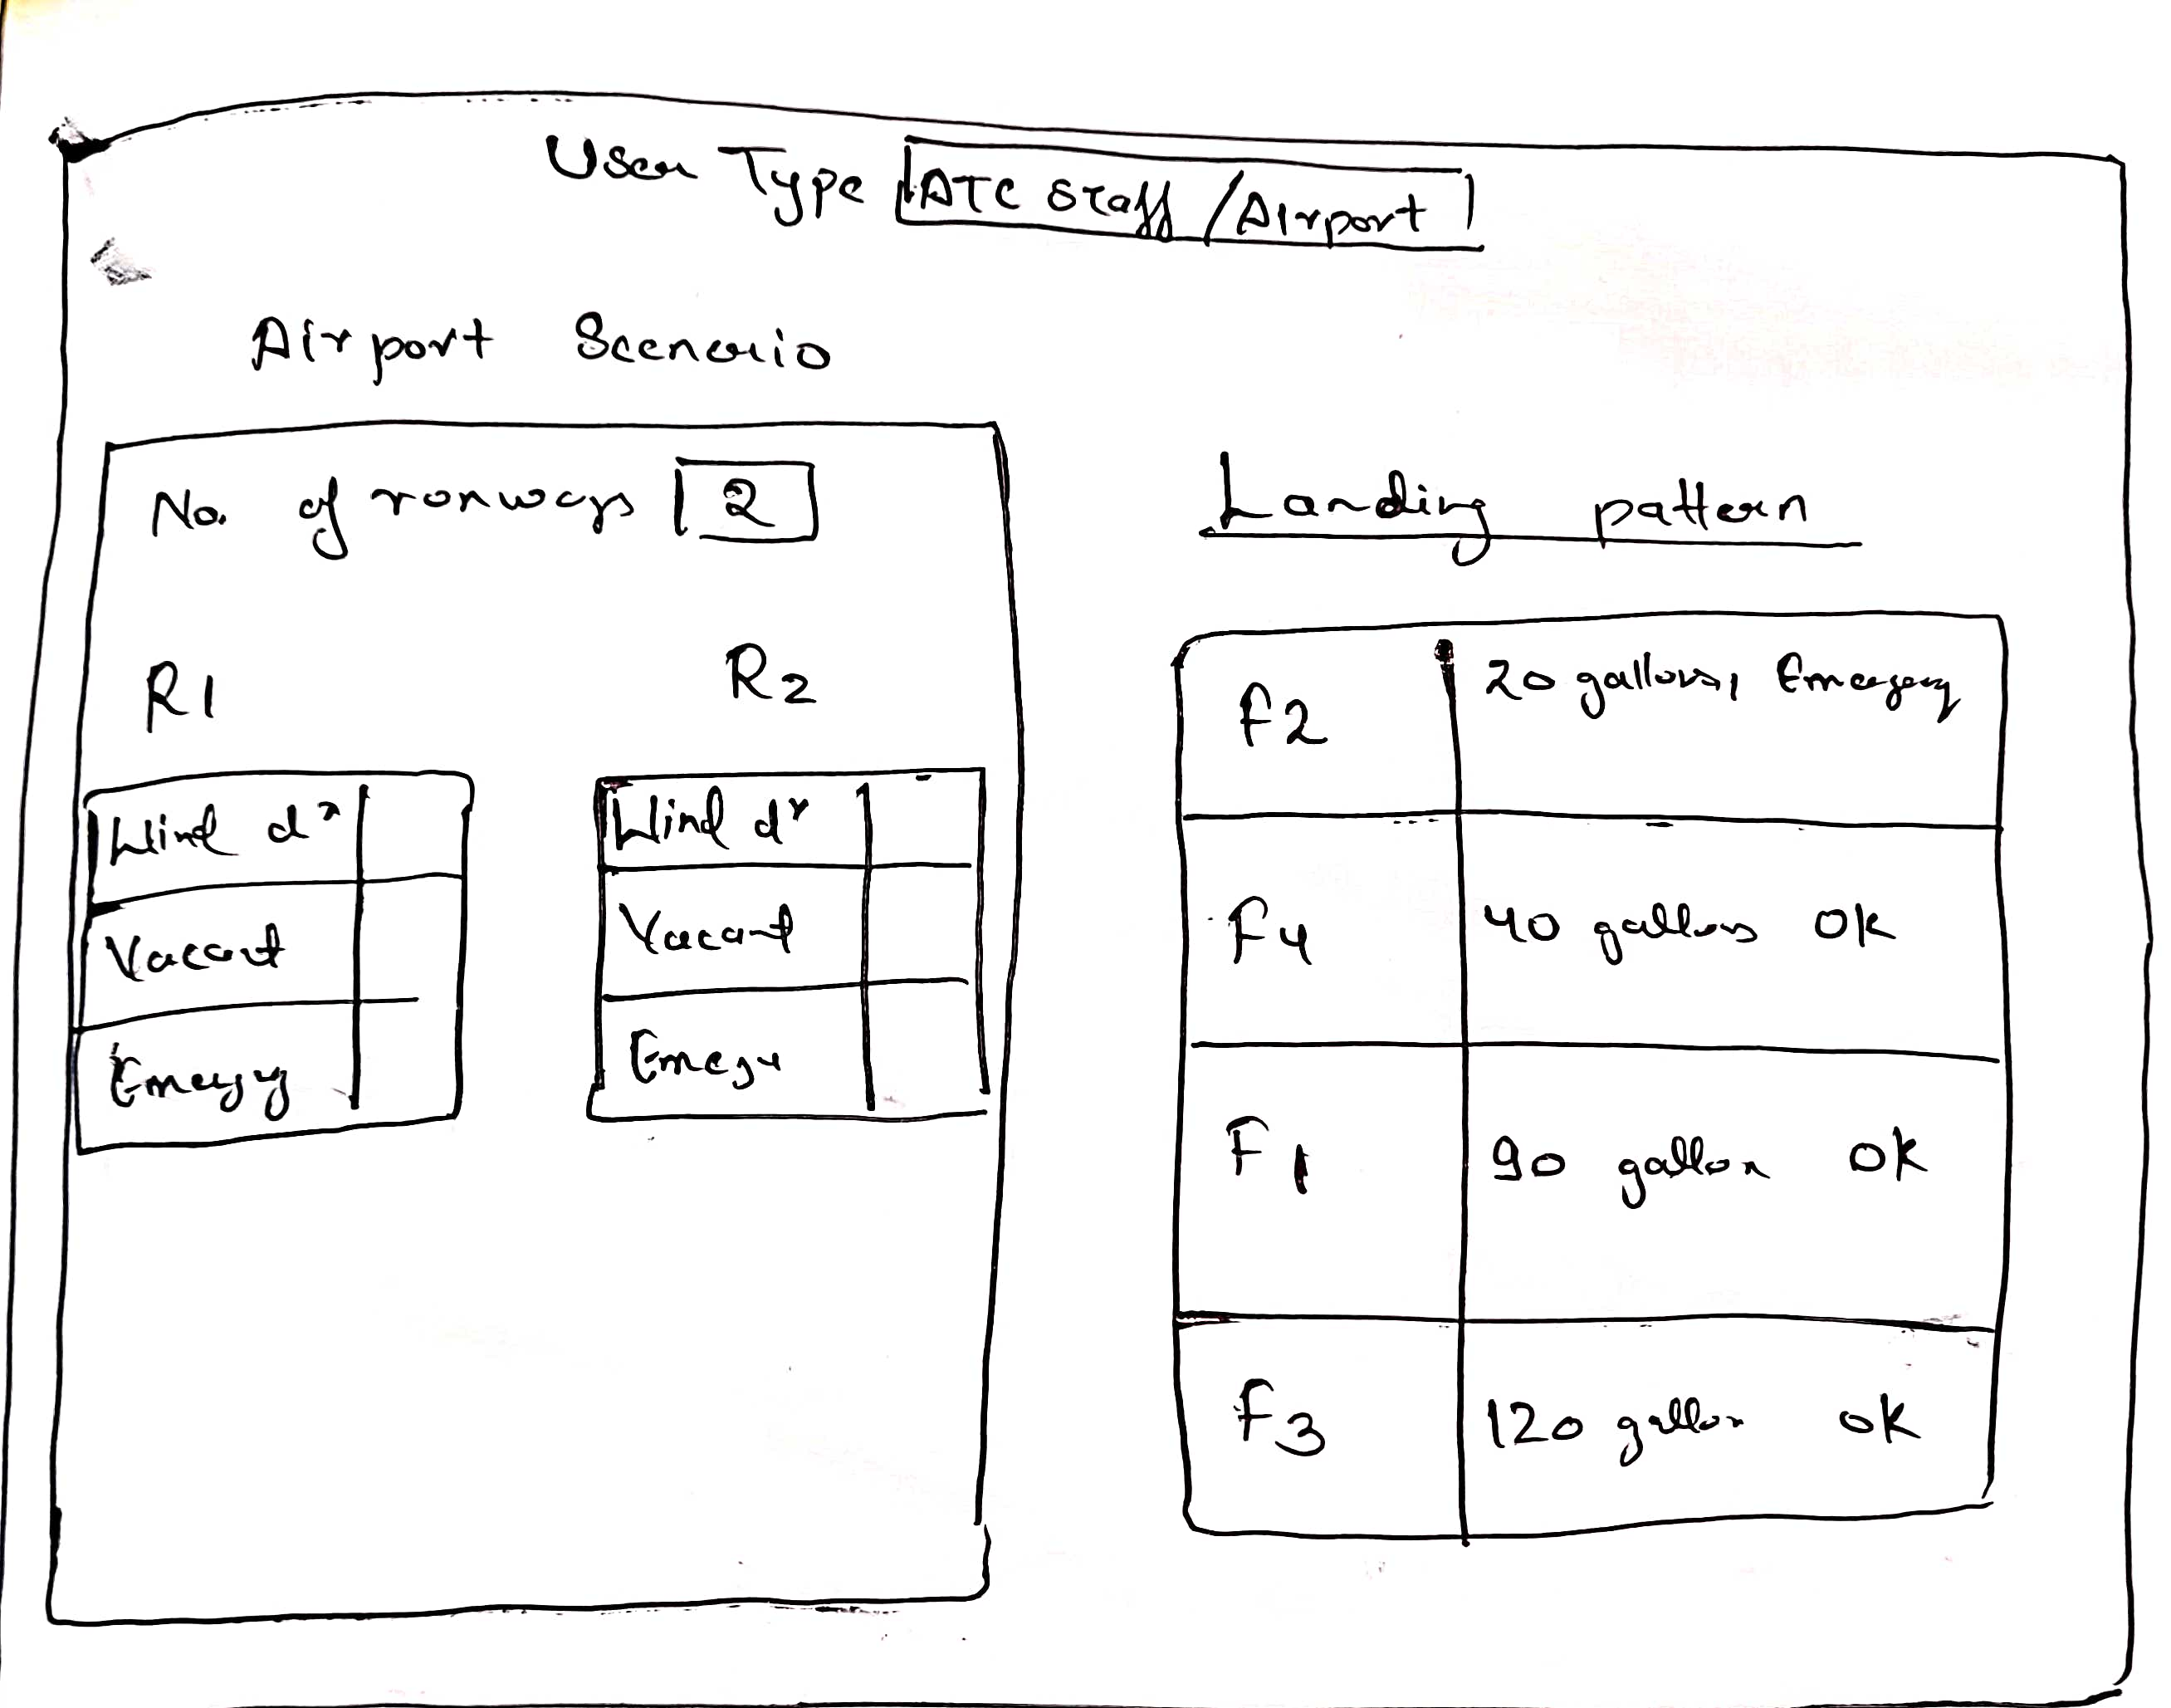 User Type ATC staff / Airport
Airport Scenario
No. of runways 2
R1 R2
Wind dr
Vacant
Emergy
Wind dr
Vacant
Emegy
Landing pattern
F2 20 gallons, Emergency
F4 40 gallons OK
F1 90 gallon OK
F3 120 gallon OK